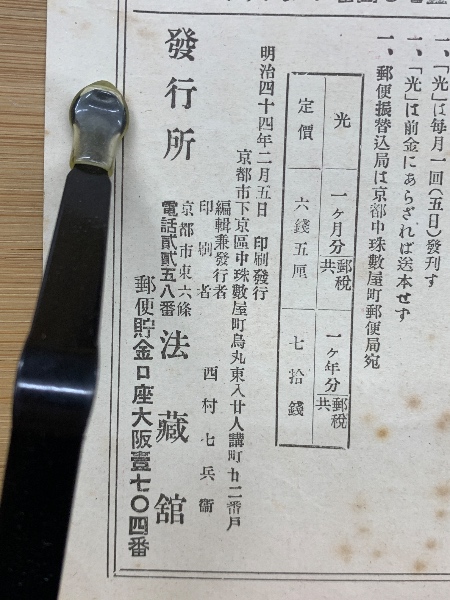 一、「光」は每月一回(五日)發刊す
一、「光」は前金にあらざれば送本せず
一、郵便振替込局は京都中珠數屋町郵便局宛
光 一ヶ月分郵稅共 一ヶ年分郵稅共
定價 六錢五厘 七拾錢
明治四十四年二月五日 印刷發行
京都市下京區中珠數屋町烏丸東入廿人講町廿二番戶
編輯兼發行者
印刷者 西村七兵衞
京都市東六條
發行所 法藏館
電話貳貳五八番
郵便貯金口座大阪壹七〇四番